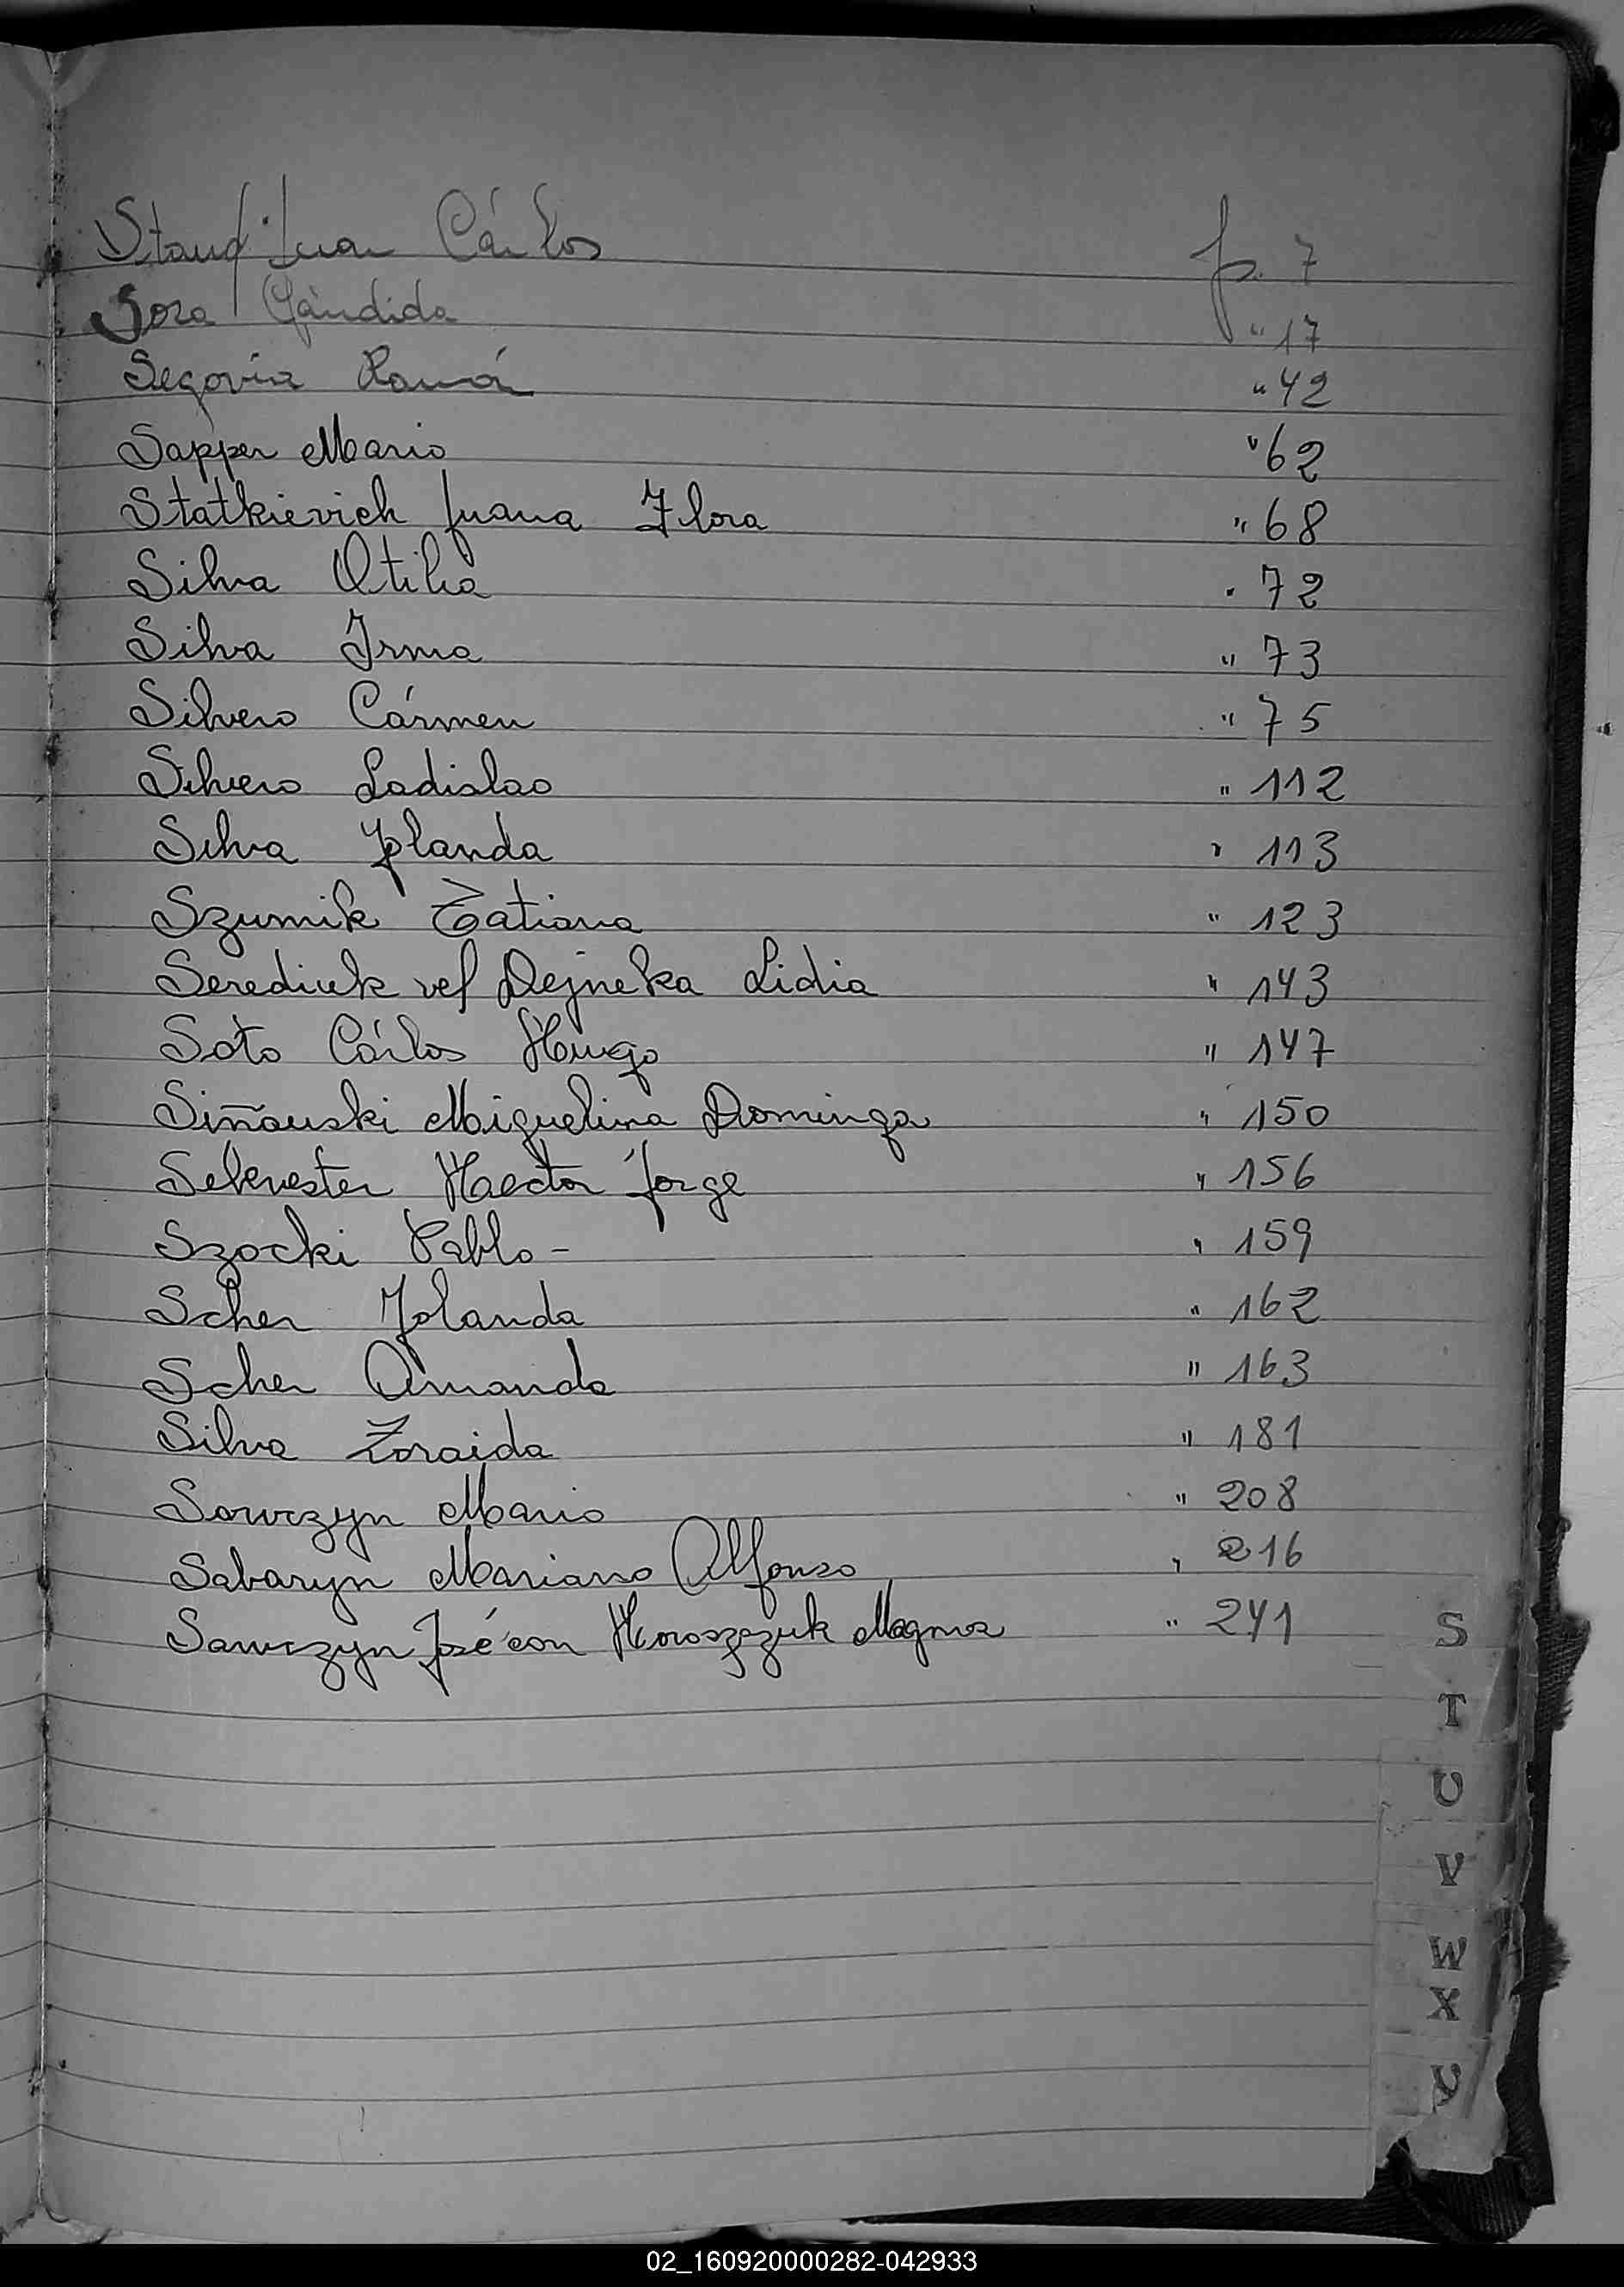 Staud Juan Cárlos p. 7
Sosa Cándida " 17
Segovia Ramón " 42
Sapper Mario " 62
Statkievich Juana Flora " 68
Silva Otilia " 72
Silva Irma " 73
Silvero Cármen " 75
Silvero Ladislao " 112
Silva Yolanda " 113
Szumik Tatiana " 123
Serediuk vel Dejneka Lidia " 143
Soto Cárlos Hugo " 147
Siñauski Miguelina Dominga " 150
Selvester Hector Jorge " 156
Szocki Pablo - " 159
Scher Yolanda " 162
Scher Amanda " 163
Silva Zoraida " 181
Sawczyn Mario " 208
Sabaryn Mariano Alfonso " 216
Sawczyn José con Horoszczuk Magna " 241
S
T
U
V
W
X
Y
02_160920000282-042933